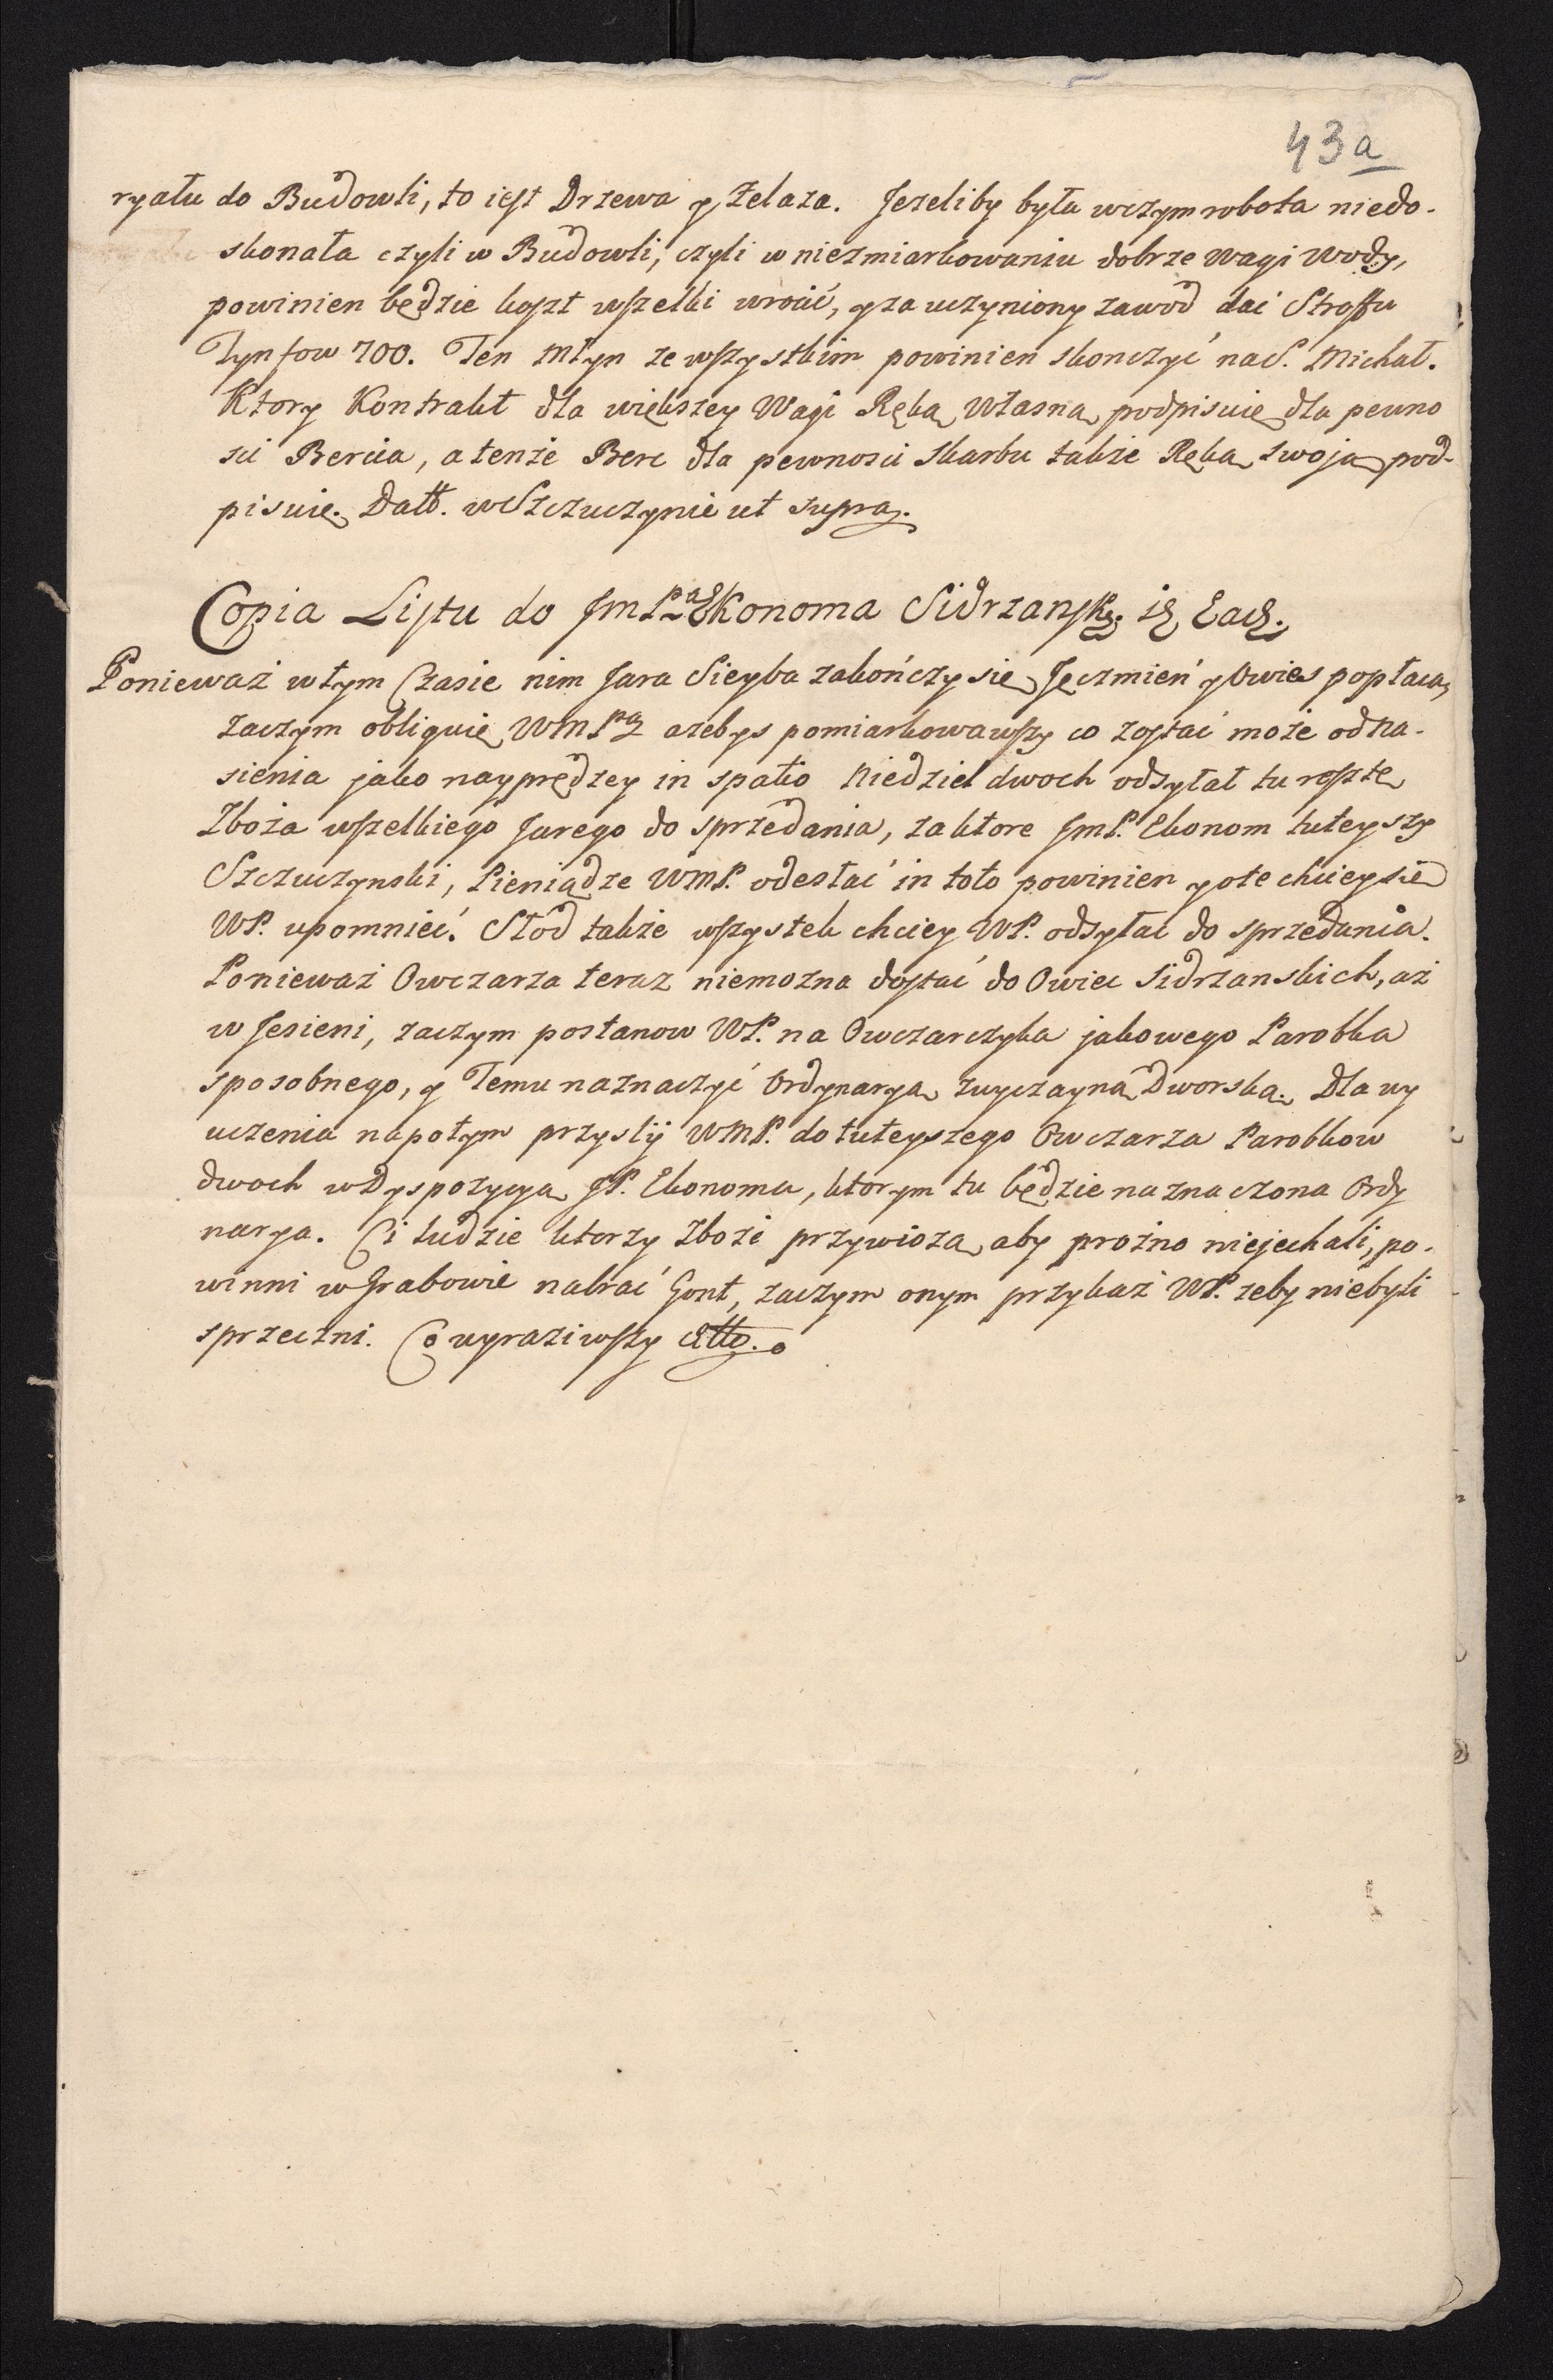 43a
ryału do Budowli, to iest Drzewa y Żelaza. Jezeliby była wczym robota niedo-
skonała czyli w Budowli, czyli w niezmiarkowaniu dobrze Wagi Wody,
powinien będzie koszt wszelki wrócić, y za uczyniony zawod dać Stroffu
Tynfow 700. Ten Młyn ze wszystkim powinien skonczyć na S. Michał.
Ktory Kontrakt dla większey Wagi Ręką Własną podpisuię dla pewno
sci Bercia, a tenże Berc dla pewnosci Skarbu także Ręką swoją pod-
pisuie. Datt. w Szczuczynie ut supra.
Copia Listu do JmPa Ekonoma Sidrzansk.
Ponieważ w tym Czasie nim Jara Sieyba zakończy się Jęczmień y Owies popłaca,
zaczym obliguię WMPa azebys pomiarkowawszy co zostać może od Na-
sienia jako nayprędzey in spatio Niedziel dwoch odsyłał tu resztę
Zboża wszelkiego Jarego do sprzedania, za ktore JmP. Ekonom tuteyszy
Szczuczynski, Pieniądze WMP. odesłać in toto powinien y o te chciey się
WP. upomnieć. Słód także wszystek chciey WP. odsyłać do sprzedania.
Ponieważ Owczarza teraz niemozna dostać do Owiec Sidrzanskich, aż
w Jesieni, zaczym postanow WP. na Owczarczyka jakowego Parobka
sposobnego, y Temu naznaczyć Ordynaryą zwyczayną Dworską. Dla wy
uczenia napotym przyslij WMP. do tuteyszego Owczarza Parobkow
dwoch w Dyspozycyą JP. Ekonoma, ktorym tu będzie naznaczona Ordy
narya. Ci Ludzie ktorzy Zboże przywiozą aby prożno niejechali, po-
winni w Grabowie nabrać Gont, zaczym onym przykaż WP. zeby niebyli
sprzeczni. Co wyraziwszy